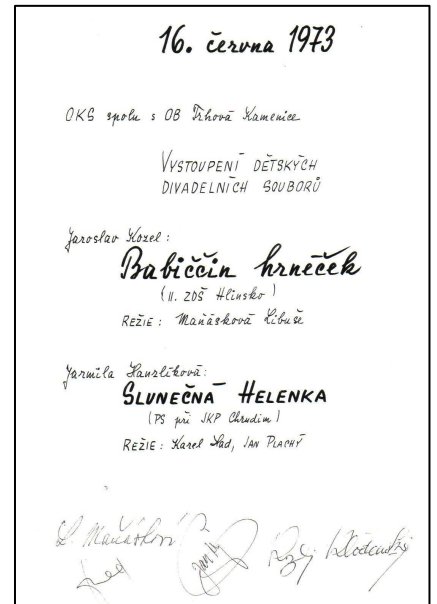 16. června 1973
OKS spolu s OB Trhová Kamenice
VYSTOUPENÍ DĚTSKÝCH
DIVADELNÍCH SOUBORŮ
Jaroslav Kozel:
Babiččin hrneček
(II. ZDŠ Hlinsko)
REŽIE: Maňásková Libuše
Jarmila Hanzlíková:
SLUNEČNÁ HELENKA
(PS při JKP Chrudim)
REŽIE: Karel Had, JAN PLACHÝ
L. Maňásková